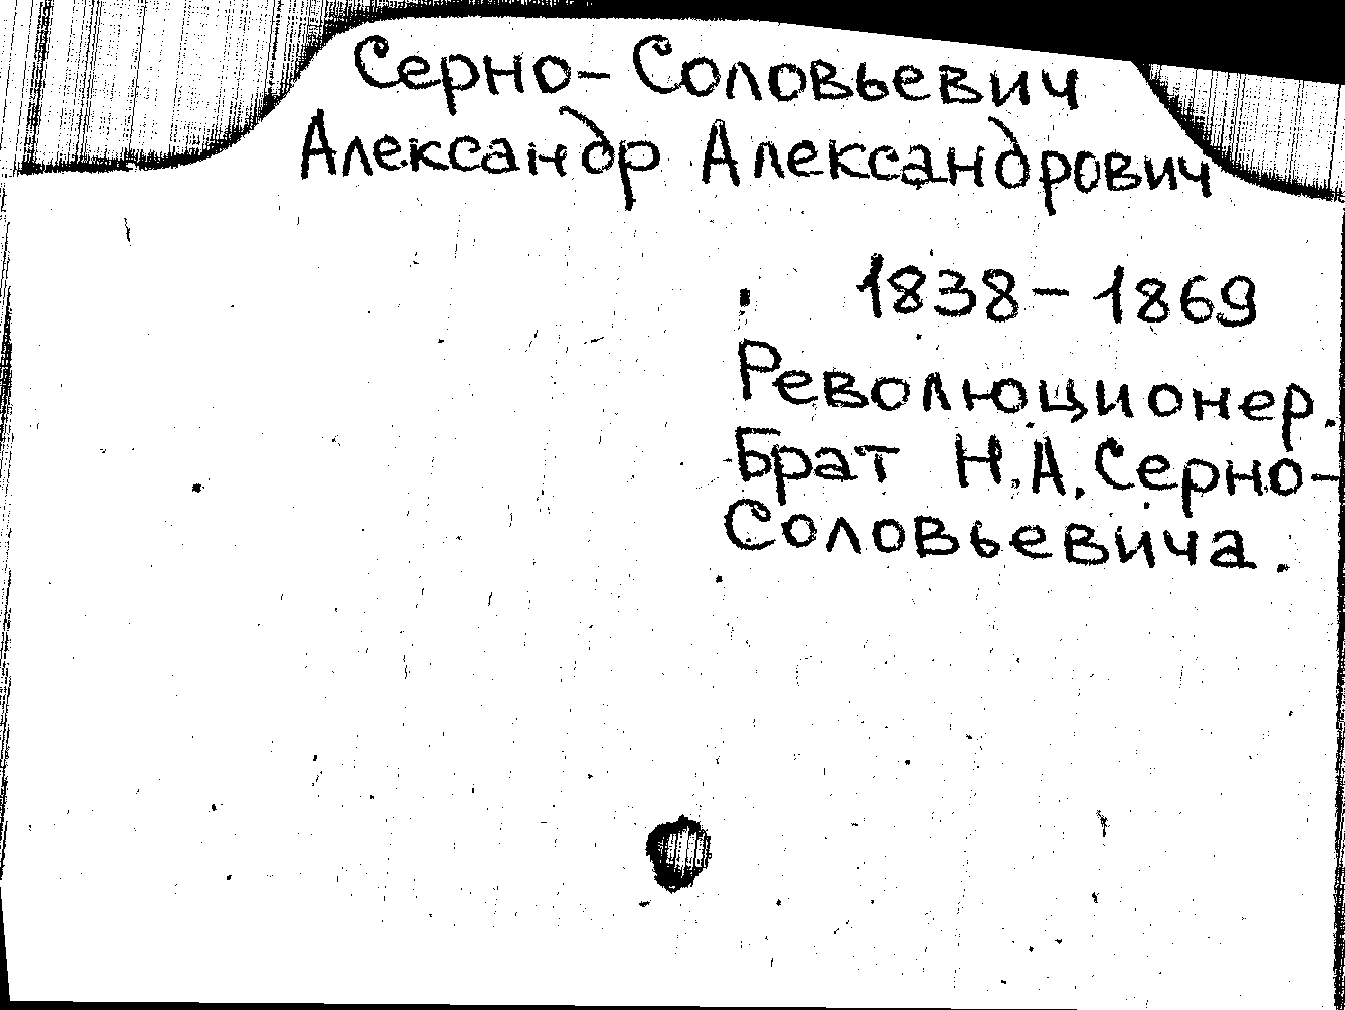 Серно-Соловьевич
Александр Александрович
1838-1869
Революционер.
Брат Н.А. Серно-
Соловьевича.